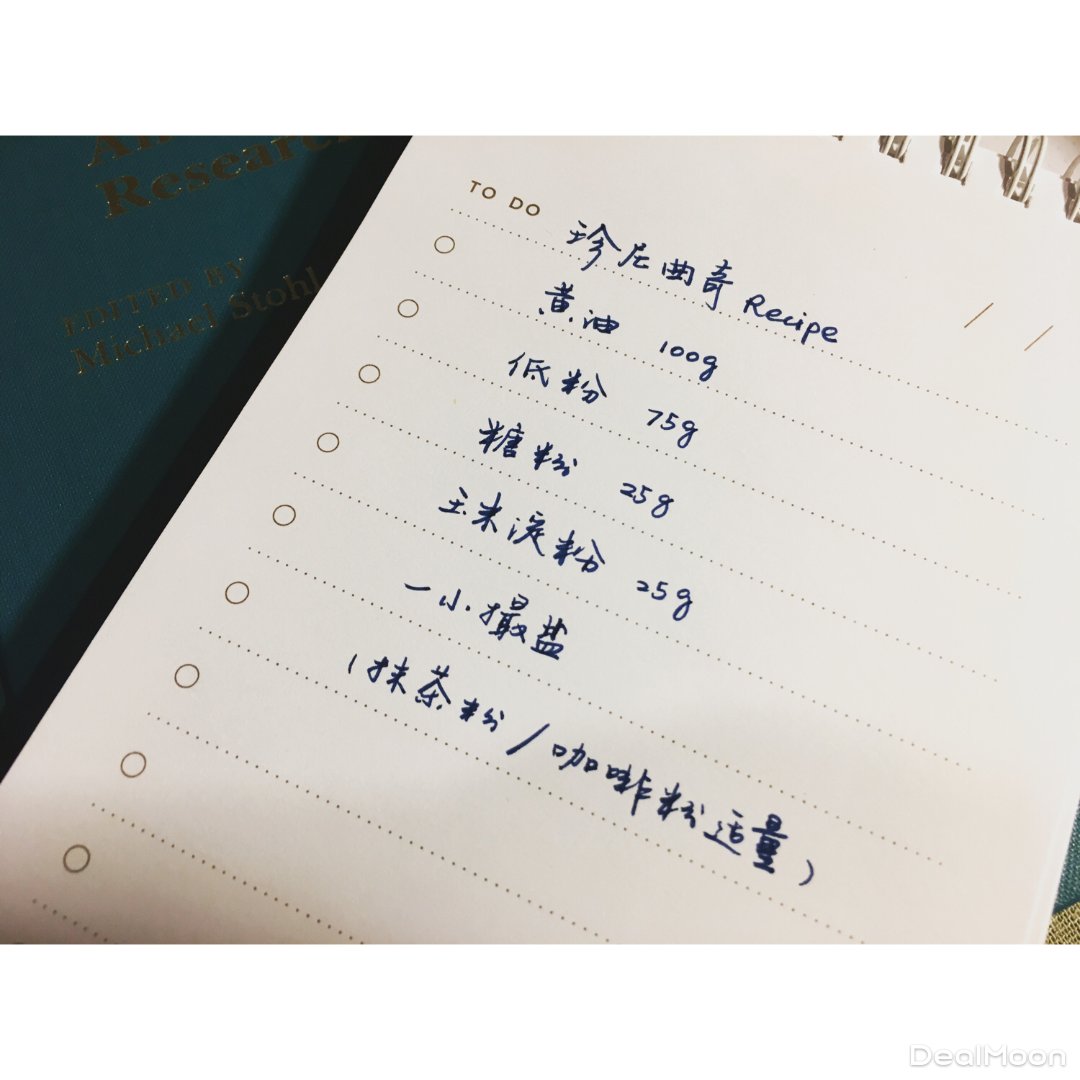 An
Research
EDITED BY
Michael Stohl
TO DO
珍尼曲奇 Recipe
/ /
黄油 100g
低粉 75g
糖粉 25g
玉米淀粉 25g
一小撮盐
(抹茶粉/咖啡粉适量)
DealMoon